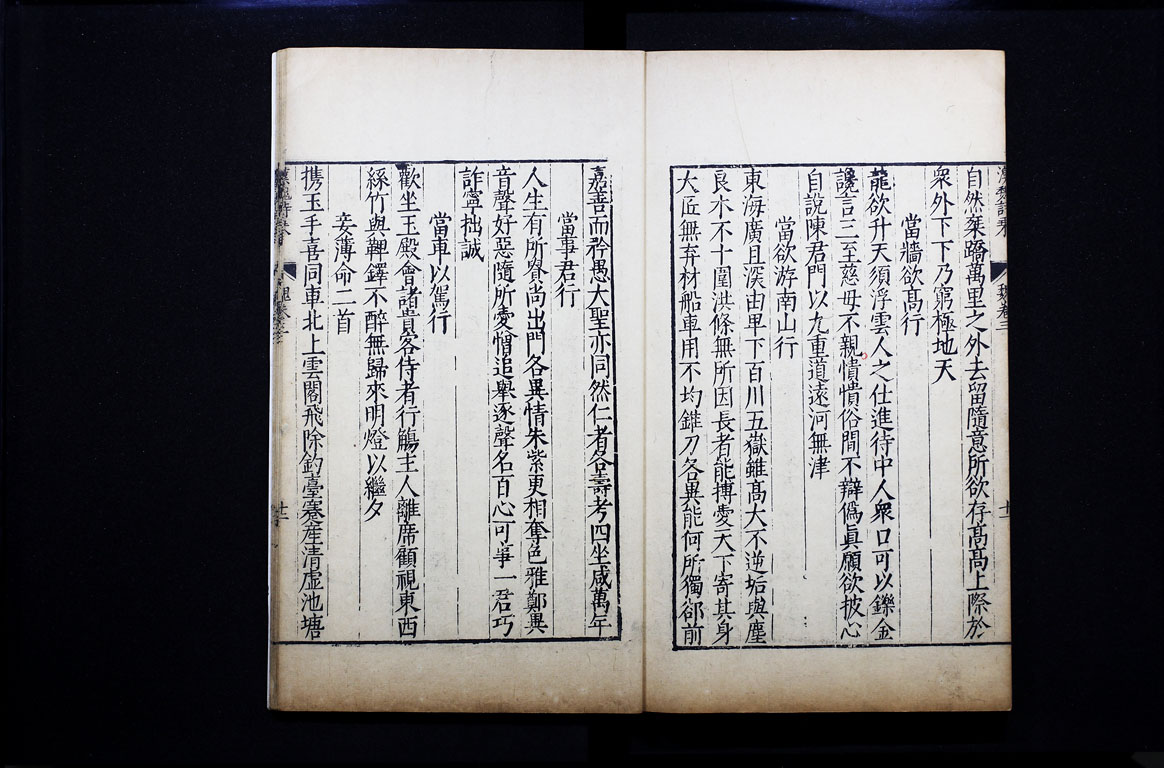 自然乗蹻萬里之外去留隨意所欲存髙髙上際於
衆外下下乃窮極地天
當牆欲髙行
龍欲升天須浮雲人之仕進待中人衆口可以鑠金
讒言三至慈母不親憒憒俗間不辯僞眞願欲披心
自說陳君門以九重道遠河無津
當欲游南山行
東海廣且深由卑下百川五嶽雖髙大不逆垢與塵
良木不十圍洪條無所因長者能搏愛天下寄其身
大匠無弃材船車用不均錐刀各異能何所獨郤前
嘉善而矜愚大聖亦同然仁者各壽考四坐咸萬年
當事君行
人生有所貴尚出門各異情朱紫更相奪色雅鄭異
音聲好惡隨所愛憎追舉逐聲名百心可事一君巧
詐寧拙誠
當車以駕行
歡坐玉殿會諸貴客侍者行觴主人離席顧視東西
絲竹與鞞鐸不醉無歸來明燈以繼夕
妾薄命二首
携玉手喜同車北上雲閣飛除釣臺蹇産清虛池塘